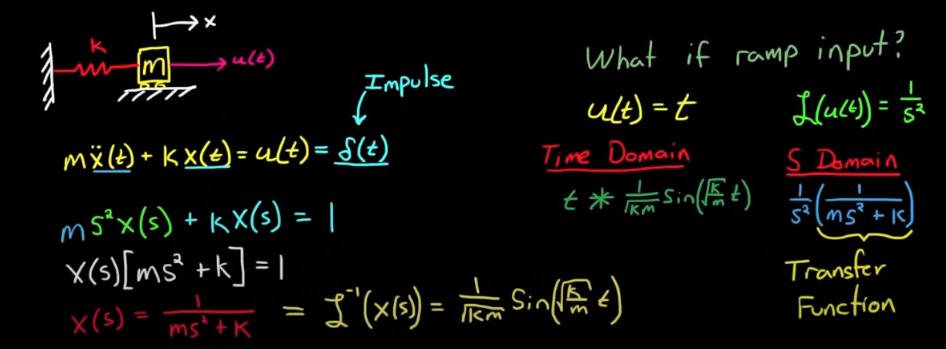 x
k
m
u(t)
Impulse
mẍ(t) + kx(t) = u(t) = δ(t)
ms²X(s) + kX(s) = 1
X(s)[ms² + k] = 1
X(s) = 1/(ms² + k) = ℒ⁻¹(X(s)) = 1/√(km) Sin(√(k/m) t)
What if ramp input?
u(t) = t
ℒ(u(t)) = 1/s²
Time Domain
S Domain
t * 1/√(km) Sin(√(k/m) t)
1/s² (1/(ms² + k))
Transfer
Function